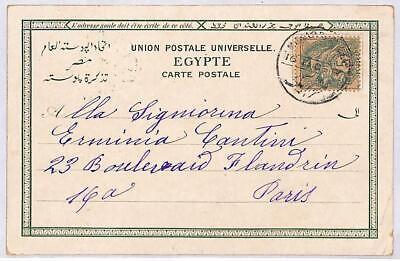 L'adresse seule doit être écrite de ce côté.
اتحاد البوسته العام
مصر
تذكرة بوسته
UNION POSTALE UNIVERSELLE.
EGYPTE
CARTE POSTALE
Alla Signiorina
Erminia Cantini
23 Boulevaid Flandrin
16a
Paris